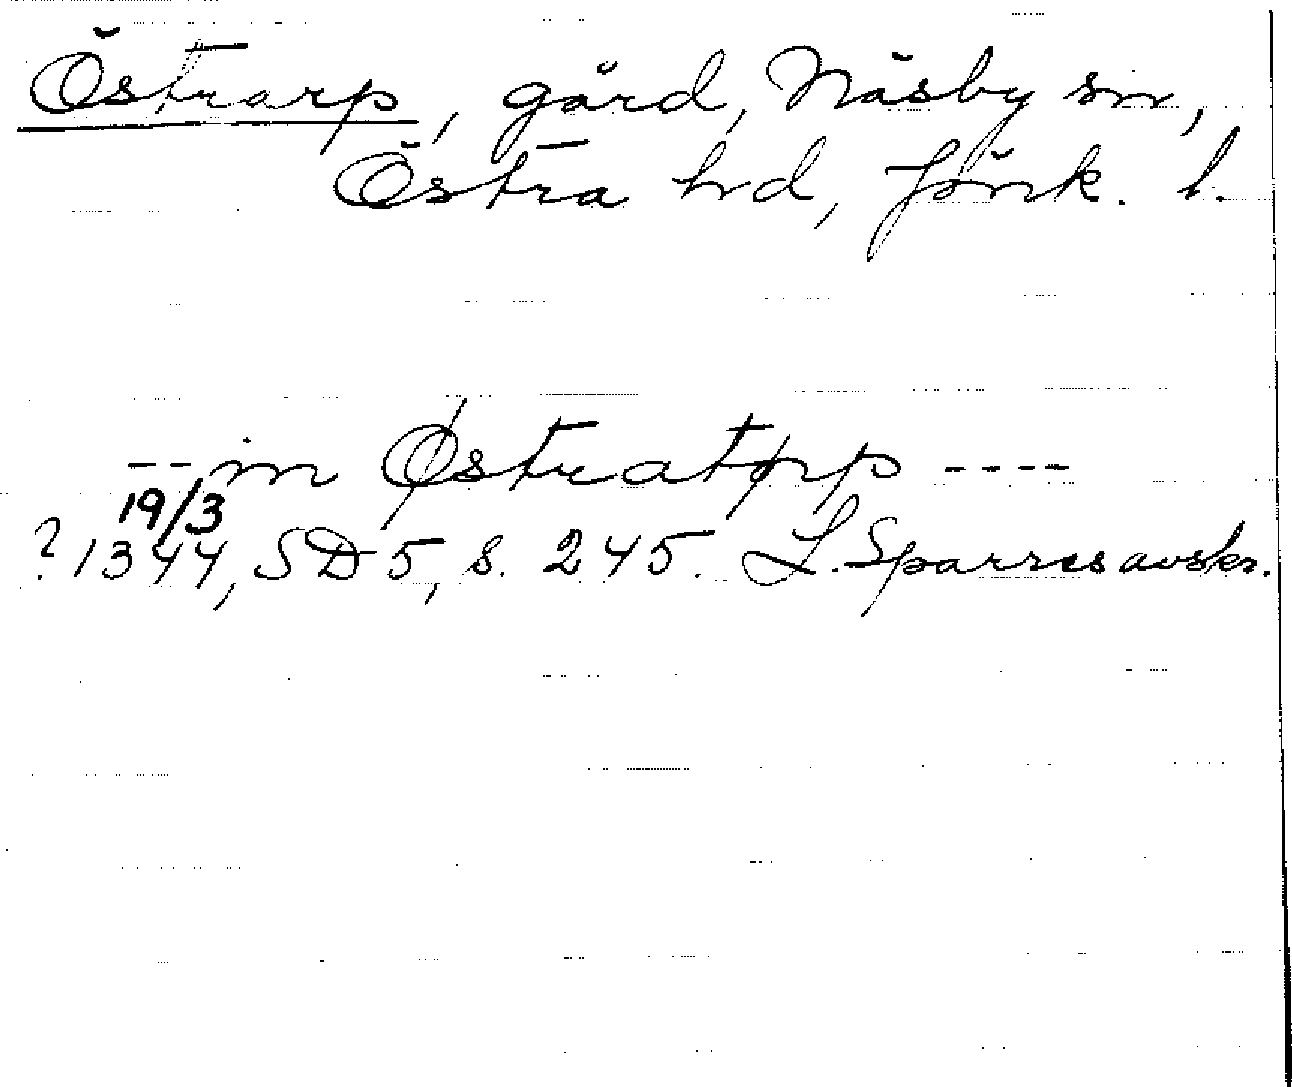 Östrarp, gård, Näsby sn,
Östra hd, Jönk. l.
-- in Østratørp ----
19/3
? 1344, SD 5, s. 245. L. Sparres avskr.